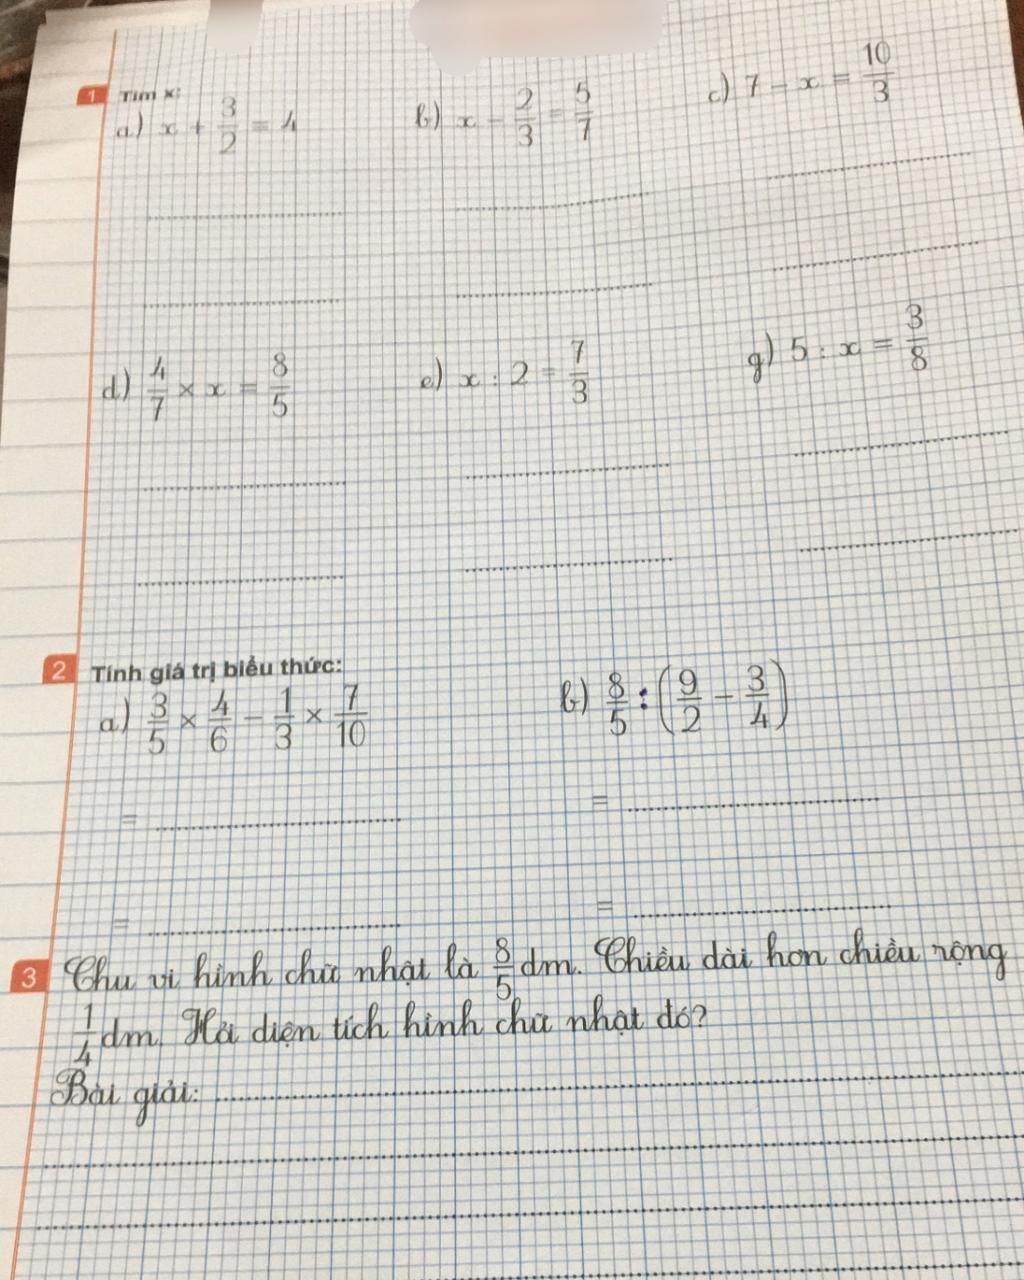 1 Tìm x:
a) x + 3/2 = 4 b) x - 2/3 = 5/7 c) 7 - x = 10/3
d) 4/7 × x = 8/5 e) x : 2 = 7/3 g) 5 : x = 3/8
2 Tính giá trị biểu thức:
a) 3/5 × 4/6 - 1/3 × 7/10 b) 8/5 : (9/2 - 3/4)
= =
= =
3 Chu vi hình chữ nhật là 8/5 dm. Chiều dài hơn chiều rộng
1/4 dm. Hỏi diện tích hình chữ nhật đó?
Bài giải: